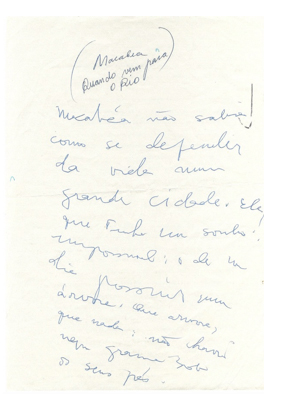 Macabea
Quando vem para
o Rio
Macabéa não sabia
como se defender
da vida numa
grande cidade. Ela
que tinha um sonho
impossível: o de um
dia possuir uma
árvore. Que árvore,
que nada: não havia
nem grama sob
os seus pés.